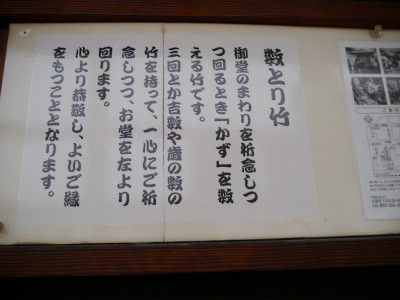 数とり竹
御堂のまわりを祈念しつ
つ回るとき「かず」を数
える竹です。
三回とか吉数や歳の数の
竹を持って、一心にご祈
念しつつ、お堂を左より
回ります。
心より恭敬し、よいご縁
をもつこととなります。